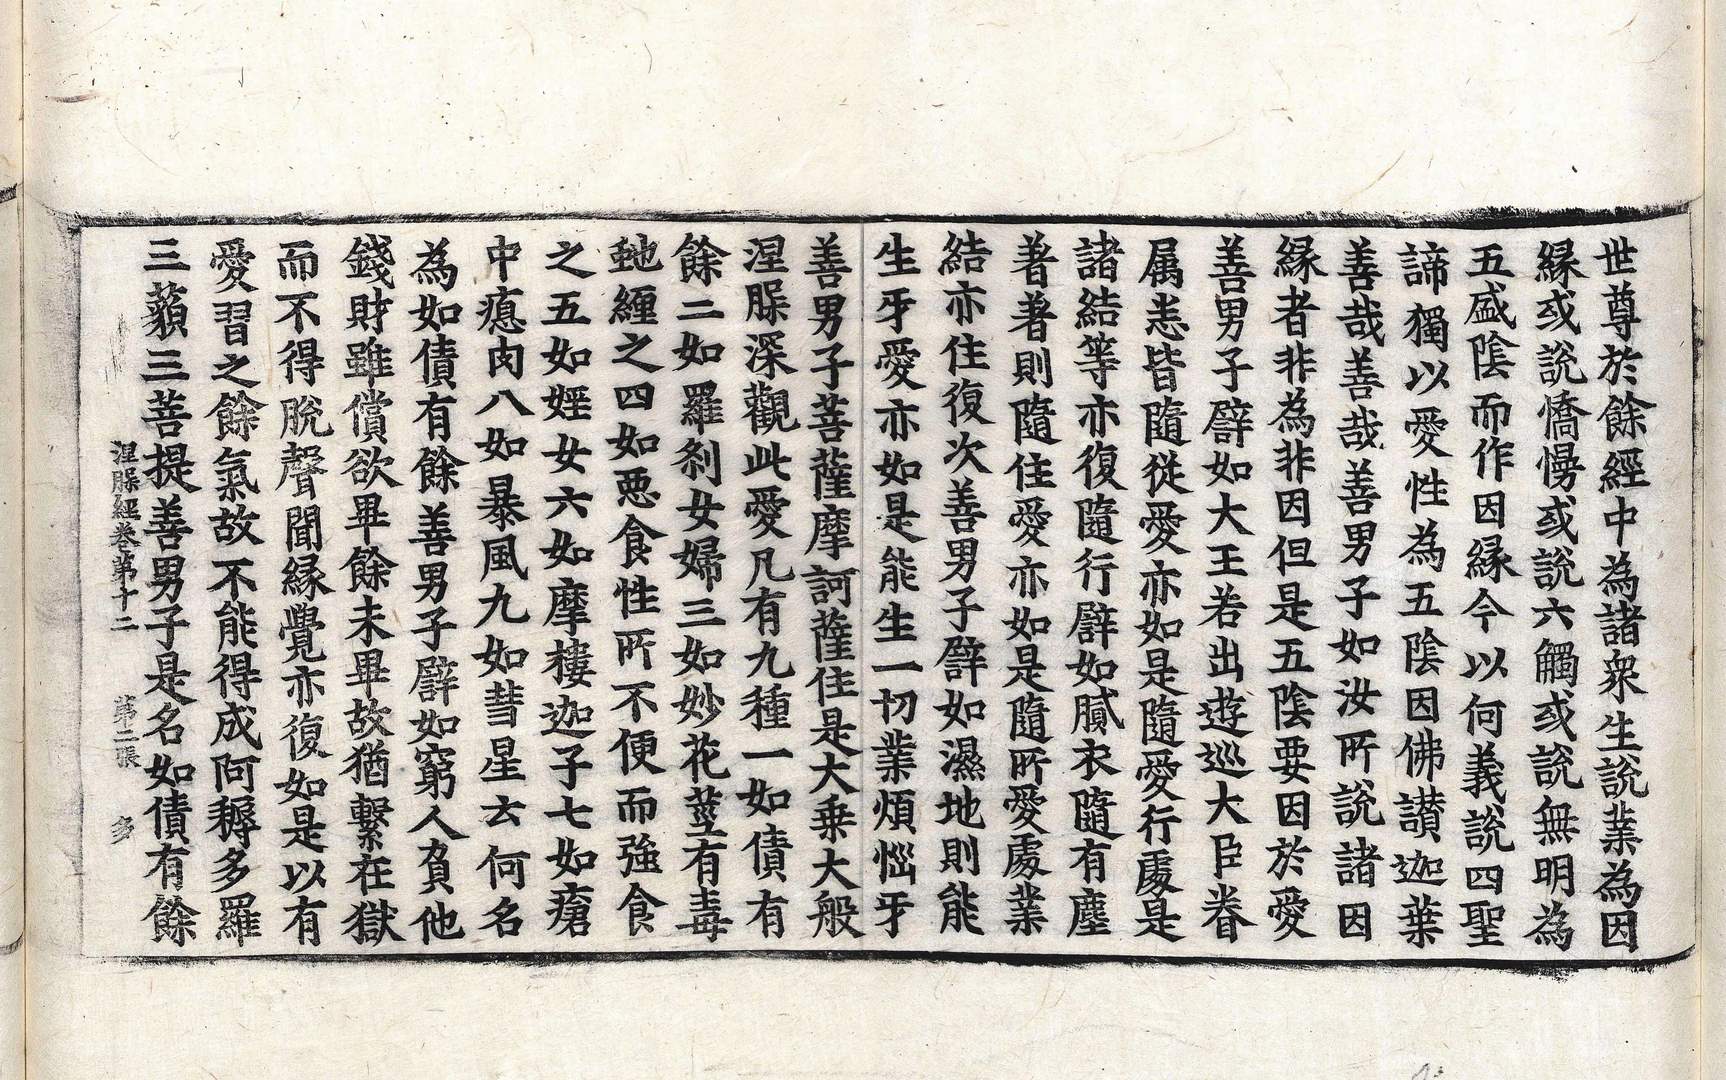 世尊於餘經中為諸衆生說業為因
緣或說憍慢或說六觸或說無明為
五盛陰而作因緣今以何義說四聖
諦獨以愛性為五陰因佛讃迦葉
善哉善哉善男子如汝所說諸因
緣者非為非因但是五陰要因於愛
善男子譬如大王若出遊巡大臣眷
属悉皆隨從愛亦如是隨愛行處是
諸結等亦復隨行譬如膩衣隨有塵
著著則隨住愛亦如是隨所愛處業
結亦住復次善男子譬如濕地則能
生牙愛亦如是能生一切業煩惱牙
善男子菩薩摩訶薩住是大乘大般
涅槃深觀此愛凡有九種一如債有
餘二如羅刹女婦三如妙花莖有毒
虵纏之四如惡食性所不便而強食
之五如婬女六如摩樓迦子七如瘡
中瘜肉八如暴風九如彗星云何名
為如債有餘善男子譬如窮人負他
錢財雖償欲畢餘未畢故猶繫在獄
而不得脫聲聞緣覺亦復如是以有
愛習之餘氣故不能得成阿耨多羅
三藐三菩提善男子是名如債有餘
涅槃經卷第十二 第二張 多